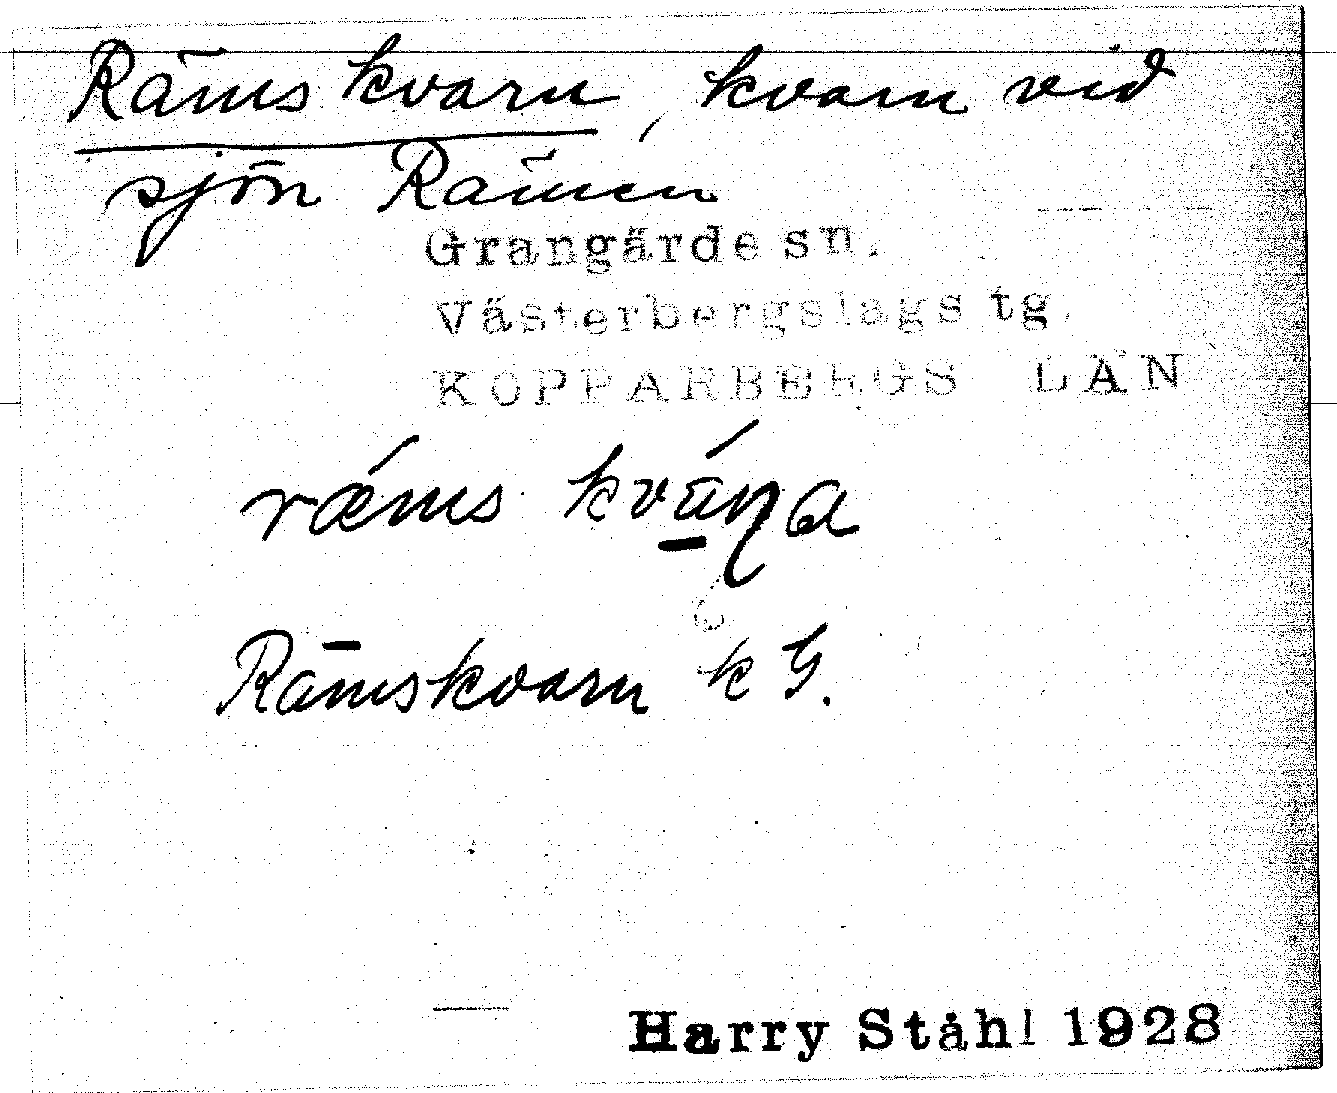 Rämskvarn, kvarn vid
sjön Rämen
Grangärde sn.
Västerbergslags tg.
KOPPARBERGS LÄN
rǽms kvá̱ɳa
Rämskvarn k G.
Harry Ståhl 1928